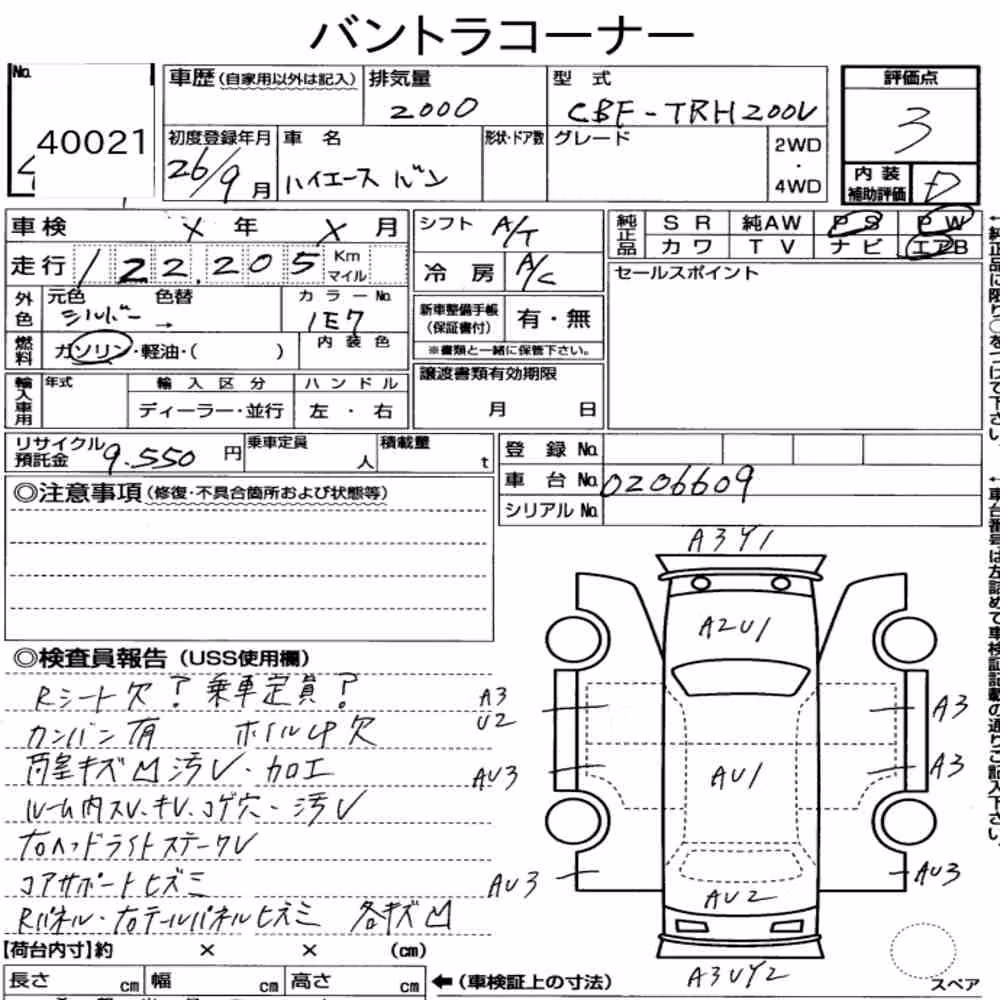 バントラコーナー
No.
40021
車歴 (自家用以外は記入)
排気量
2000
型 式
CBF-TRH200V
評価点
3
初度登録年月
26/9 月
車 名
ハイエース バン
形状・ドア数
グレード
2WD
・
4WD
内 装
補助評価
D
車検 X 年 X 月
シフト A/T
純正品
S R 純AW P S P W
カ ワ T V ナ ビ エアB
走行 122,205 Km
マイル
冷 房 A/C
セールスポイント
外色
元色 色替 カ ラ ー No.
シルバー → 1E7
新車整備手帳
(保証書付)
有・無
※書類と一緒に保管下さい。
燃料
ガソリン・軽油・( )
内 装 色
輸入車用
年式
輸 入 区 分
ハ ン ド ル
ディーラー・並行
左 ・ 右
譲渡書類有効期限
月 日
リサイクル
預託金
9.550 円
乗車定員
人
積載量
t
登 録 No.
車 台 No. 0206609
シリアル No.
◎注意事項 (修復・不具合箇所および状態等)
◎検査員報告 (USS使用欄)
Rシート欠? 乗車定員?
カンバン有 ホイルCP欠
内皇キズ凹汚レ・加工
ルーム内スレ、キレ、コゲ穴・汚レ
右ヘッドライトステークレ
コアサポートヒズミ
Rパネル・右テールパネルヒズミ 各キズ凹
A3Y1
A2U1
A3
U2
A3
AU3
AU1
A3
AU3
AU2
AU3
A3UY2
【荷台内寸】約 × × (cm)
長さ cm 幅 cm 高さ cm
← (車検証上の寸法)
スペア
←純正品に限り○をつけて下さい。
←車台番号は左詰めで車検証記載の通りご記入下さい。